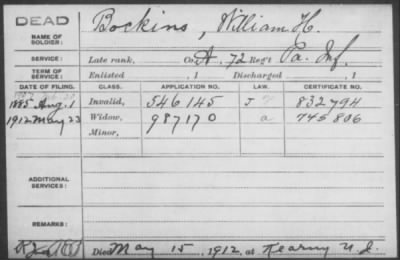 DEAD
NAME OF SOLDIER: Bockins, William H.
SERVICE: Late rank, Co. A, 72 Reg't Pa. Inf.
TERM OF SERVICE: Enlisted , 1 Discharged , 1
DATE OF FILING. CLASS. APPLICATION NO. LAW. CERTIFICATE NO.
1885 Aug. 1 Invalid, 546145 J 832794
1912 May 23 Widow, 987170 a 745806
Minor,
ADDITIONAL SERVICES:
REMARKS:
Died May 15, 1912, at Kearny N.J.